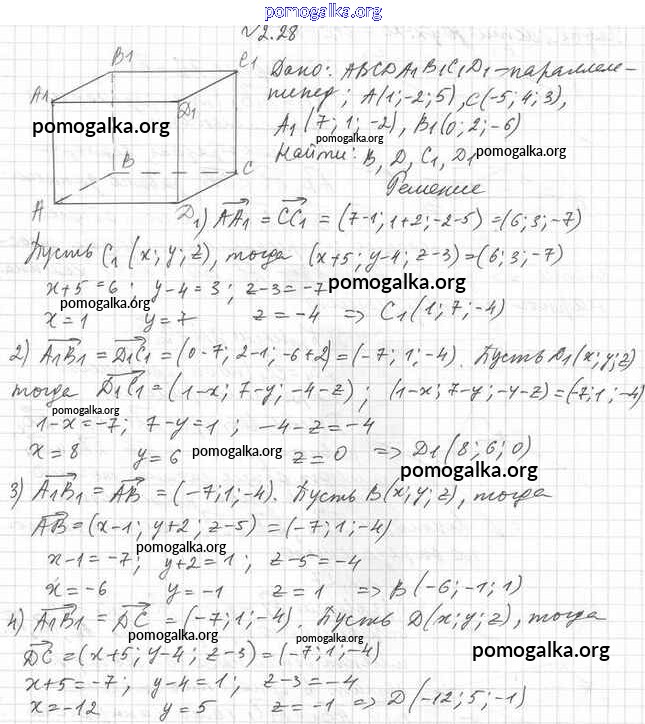 pomogalka.org
№ 2.28
B1 C1
A1 D1
B C
A D
Дано: ABCDA1B1C1D1-параллеле-
пипед; A(1;-2;5), C(-5;4;3),
pomogalka.org
A1(7;1;-2), B1(0;2;-6)
pomogalka.org
Найти: B, D, C1, D1 pomogalka.org
Решение
1) AA1 = CC1 = (7-1; 1+2; -2-5)=(6;3;-7)
Пусть C1 (x;y;z), тогда (x+5; y-4; z-3)=(6;3;-7)
x+5=6; y-4=3; z-3=-7 pomogalka.org
pomogalka.org
x=1 y=7 z=-4 => C1(1;7;-4)
2) A1B1 = D1C1 = (0-7; 2-1; -6+2)=(-7; 1;-4). Пусть D1(x;y;z)
тогда D1C1=(1-x; 7-y; -4-z); (1-x; 7-y; -4-z)=(-7;1;-4)
pomogalka.org
1-x=-7; 7-y=1; -4-z=-4
x=8 y=6 pomogalka.org z=0 => D1(8;6;0)
pomogalka.org
3) A1B1 = AB = (-7;1;-4). Пусть B(x;y;z), тогда
pomogalka.org
AB=(x-1; y+2; z-5)=(-7;1;-4)
pomogalka.org
x-1=-7; y+2=1; z-5=-4
x=-6 y=-1 z=1 => B(-6;-1;1)
4) A1B1 = DC = (-7;1;-4). Пусть D(x;y;z), тогда
pomogalka.org
DC=(x+5; y-4; z-3)=(-7;1;-4) pomogalka.org
x+5=-7; y-4=1; z-3=-4
pomogalka.org
x=-12 y=5 z=-1 => D(-12;5;-1)